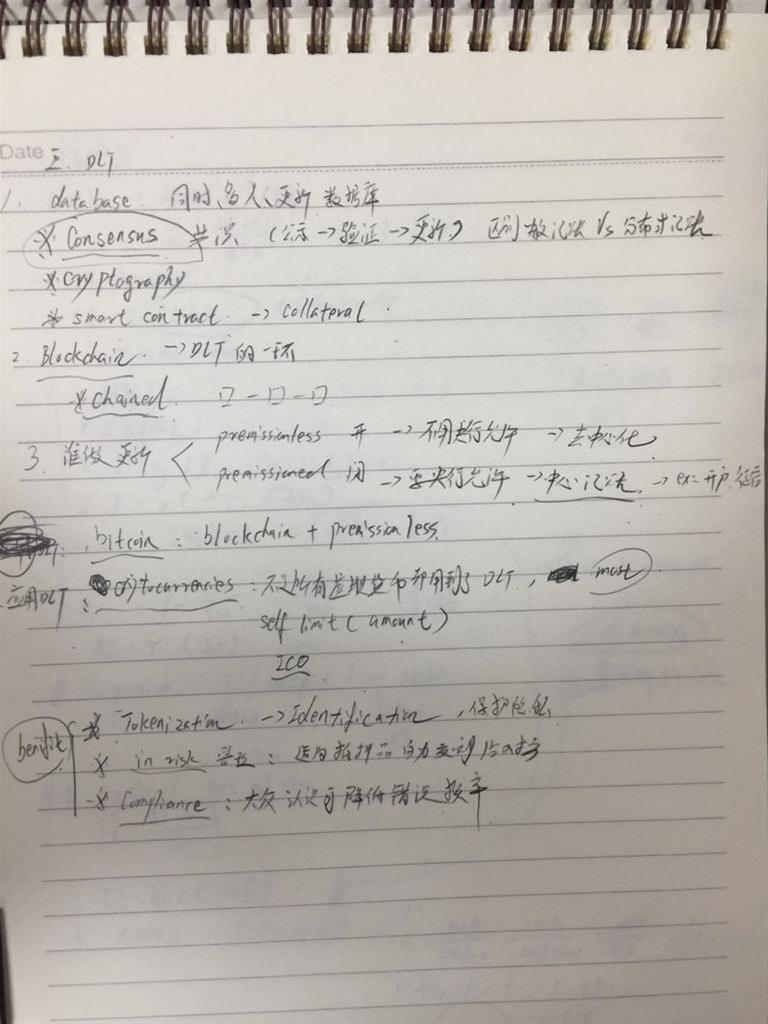 Date 三、DLT
1. database 同时,多人,更新 数据库
* Consensus 共识 (公示→验证→更新) 区别 记账 Vs 分布式记账
* Cryptography
* smart contract → collateral.
2. Blockchain. → DLT 的一环
* chained. 口-口-口
3. 准做更新 < premissionless 开 → 不用央行允许 → 去中心化
premissioned 闭 → 要央行允许 → 中心记账 → ex: 开户,
bitcoin: blockchain + premissionless
应用DLT: cryptocurrencies: 不是所有虚拟货币都用到了 DLT, most
self limit (amount)
ICO
benifit * Tokenization → Identification, 保护隐私
* in risk 管理: 抵押品自动
* Compliance: 大众认证可降低错误概率